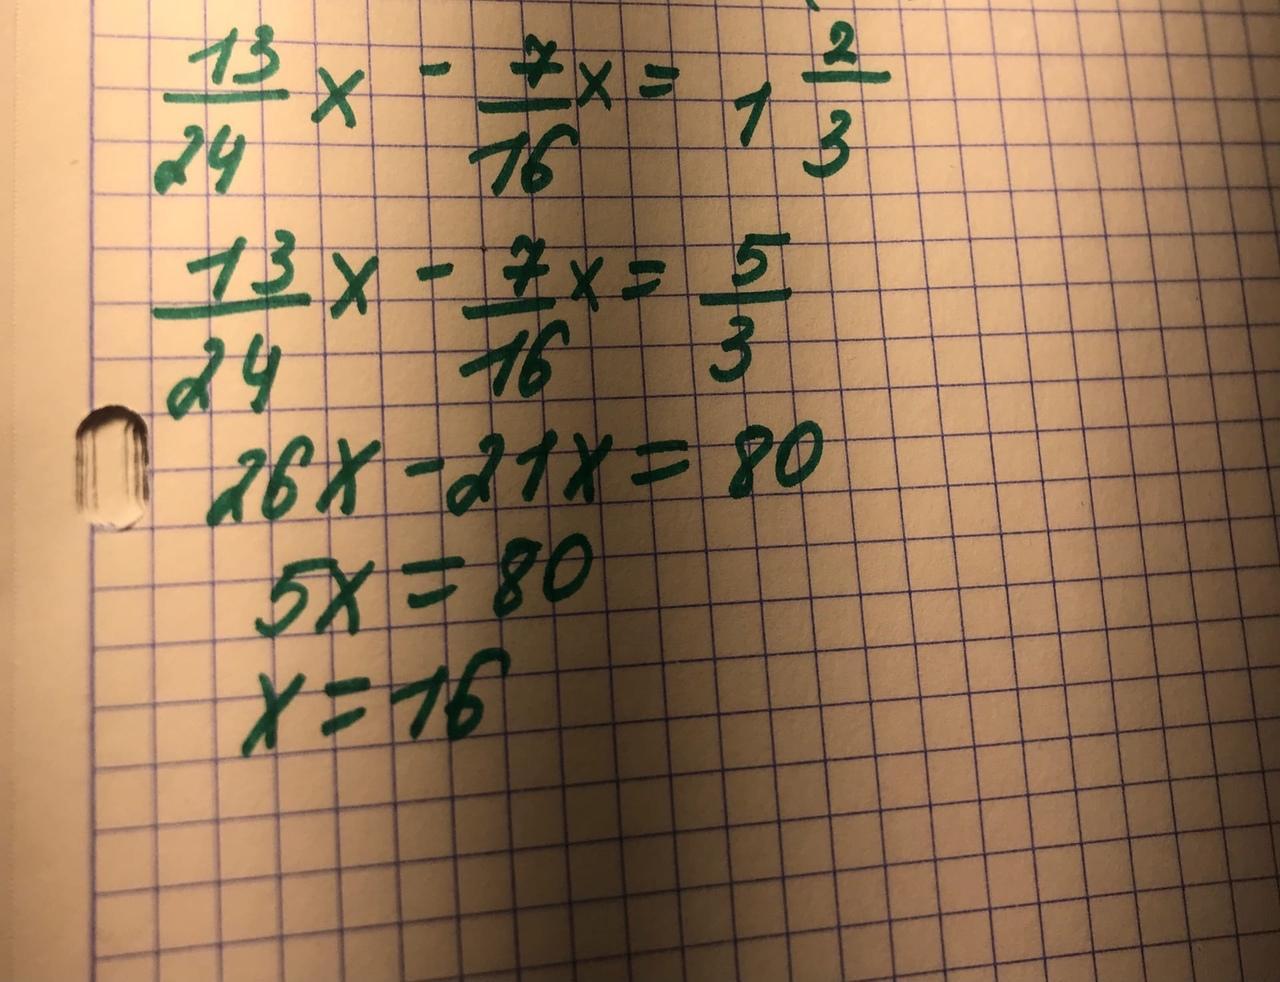 13/24 x - 7/16 x = 1 2/3
13/24 x - 7/16 x = 5/3
26x - 21x = 80
5x = 80
x = 16